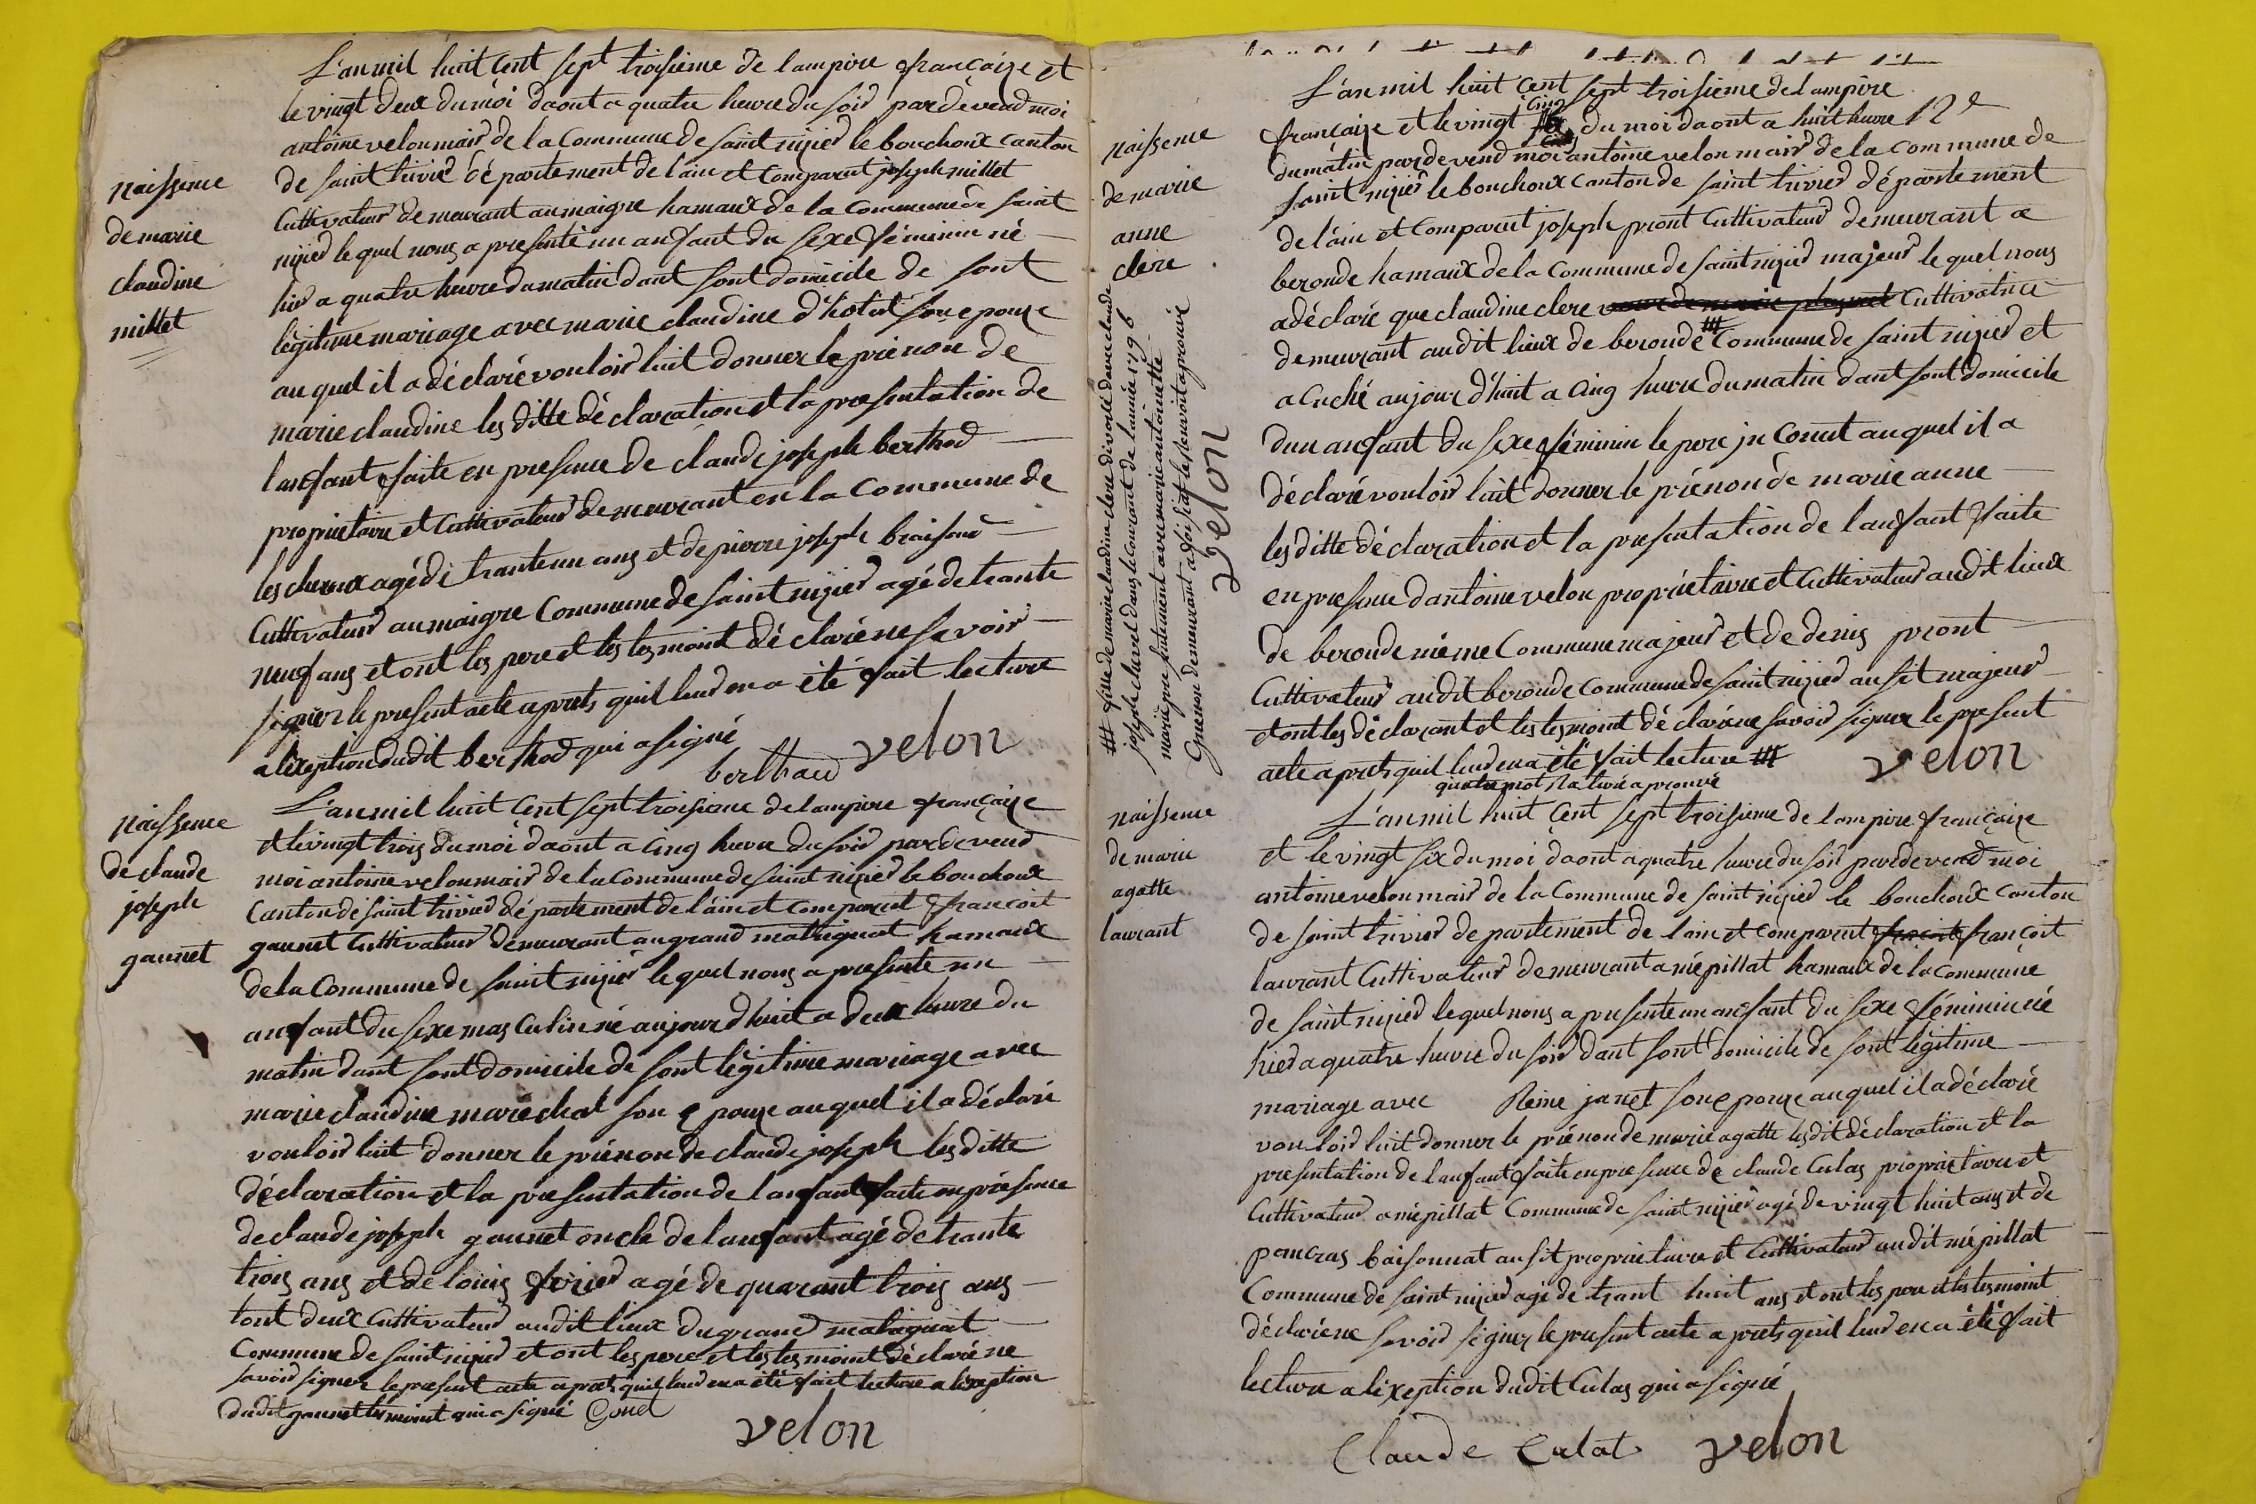 L'an mil huit cent sept troisieme de lampire française et
le vingt deux du moi daout a quatre heure du soir pardevend moi
antoine velon mair de la Commune de saint nizier le bouchoux canton
de saint trivier département de lain et comparut joseph millet
Cultivateur demeurant au maigre hamaux de la commune de saint
nizier le quel nous a presenté un anfant du sexe féminin né
hier a quatre heure du matin dant sont domicile de sont
légitime mariage avec marie claudine d'hotal son epouze
au quel il a déclaré vouloir luit donner le prénon de
marie claudine les ditte déclaration et la presentation de
lanfant faite en presence de claude joseph berthod
propriétaire et Cultivateur demeurant en la Commune de
les cheroux agé de trante un ans et de pierre joseph
Cultivateur au maigre Commune de saint nizier agé de trante
neuf ans et ont les pere et les tesmoint déclaré ne savoir
signer le present acte aprets quil leur en a été fait lecture
a lexeption dudit berthod qui a signé
berthaud velon
naissence
de marie
claudine
millet
L'an mil huit cent sept troisieme de lampire française
et le vingt trois du moi daout a cinq heure du soir pardevend
moi antoine velon mair de la Commune de saint nizier le bouchoux
Canton de saint trivier département de lain et comparut françoit
gaunet Cultivateur demeurant au grand hamaux
de la Commune de saint nizier le quel nous a presente un
anfant du sexe masculin né aujourdhuit a deux heure du
matin dant sont domicile de sont légitime mariage avec
marie claudine maréchal son epouze au quel il a déclaré
vouloir luit donner le prénon de claude joseph les ditte
déclaration et la presentation de lanfant faite en présence
de claude joseph gaunet oncle de lanfant agé de trante
trois ans et de louis agé de quarant trois ans
tout deux Cultivateur audit lieux du grand
Commune de saint nizier et ont les pere et les tesmoint déclaré ne
savoir signer le present acte aprets quil leur en a été fait lecture a lexeption
dudit gaunet tesmoint qui a signé Gonet
velon
naissence
de claude
joseph
gaunet
L'an mil huit cent sept troisieme de lampire
française et le vingt cinq du moi daout a huit heure 12e
du matin pardevend moi antoine velon mair de la commune de
saint nizier le bouchoux canton de saint trivier département
de lain et comparut joseph pront Cultivateur demeurant a
beronde hamaux de la Commune de saint nizier majeur le quel nous
a déclaré que claudine clere Cultivatrice
demeurant au dit lieux de beronde # Commune de saint nizier et
a cuché aujourd'huit a cinq heure du matin dant sont domicile
dun anfant du sexe féminin le pere in conut au quel il a
déclaré vouloir luit donner le prénon de marie anne
les ditte déclaration et la presentation de lanfant faite
en presence dantoine velon propriétaire et Cultivateur audit lieux
de beronde même Commune majeur et de denis pront
Cultivateur audit beronde commune de saint nizier ausit majeur
et ont les déclarant et les tesmoint déclaré ne savoir signer le present
acte aprets quil leur en a été fait lecture #
quatre mot aprouvé
velon
naissence
de marie
anne
clere
# fille de marie claudine clere divorcé davec claude
joseph clavel dans le courant de lannée 1796
marié presentement avec marie antoinette
demeurant a aprouvé
velon
L'an mil huit cent sept troisieme de lampire française
et le vingt six du moi daout a quatre heure du soir pardevend moi
antoine velon mair de la Commune de saint nizier le bouchoux canton
de saint trivier département de lain et comparut françoit
laurant Cultivateur demeurant a mépillat hamaux de la commune
de saint nizier le quel nous a presente un anfant du sexe féminin né
hier a quatre heure du soir dant sont domicile de sont légitime
mariage avec Reine janet son epouze au quel il a déclaré
vouloir luit donner le prénon de marie agatte les dit déclaration et la
presentation de lanfant faite en presence de claude Culas propriétaire et
Cultivateur a mépillat Commune de saint nizier agé de vingt huit ans et de
pancras baisonnat ausit propriétaire et Cultivateur audit mépillat
Commune de saint nizier agé de trant huit ans et ont les pere et les tesmoint
déclaré ne savoir signer le present acte aprets quil leur en a été fait
lecture a lexeption dudit Culas qui a signé
Claude Culat velon
naissence
de marie
agatte
laurant